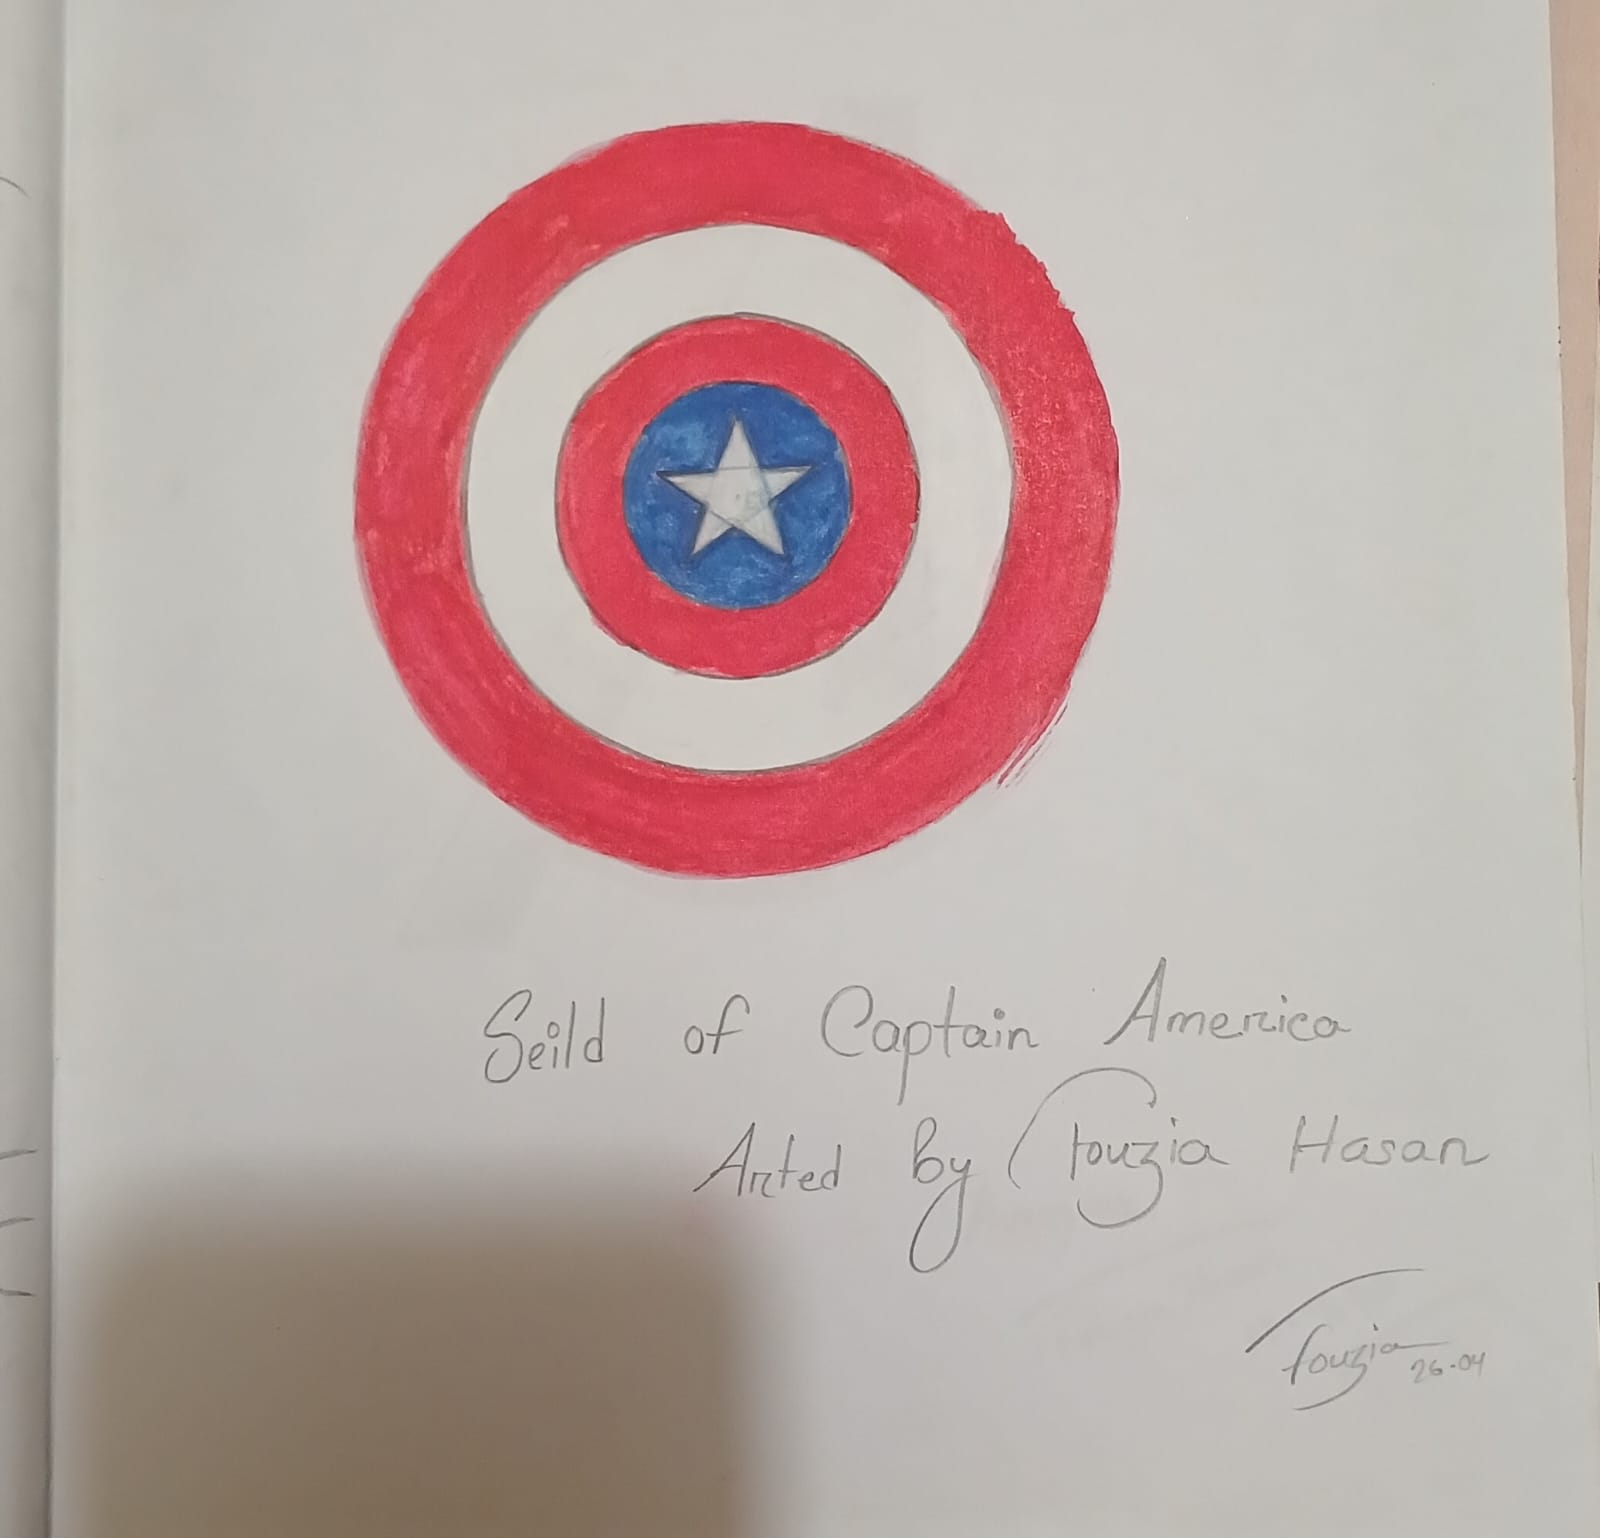 Seild of Captain America
Arted by Fouzia Hasan
Fouzia
26-04